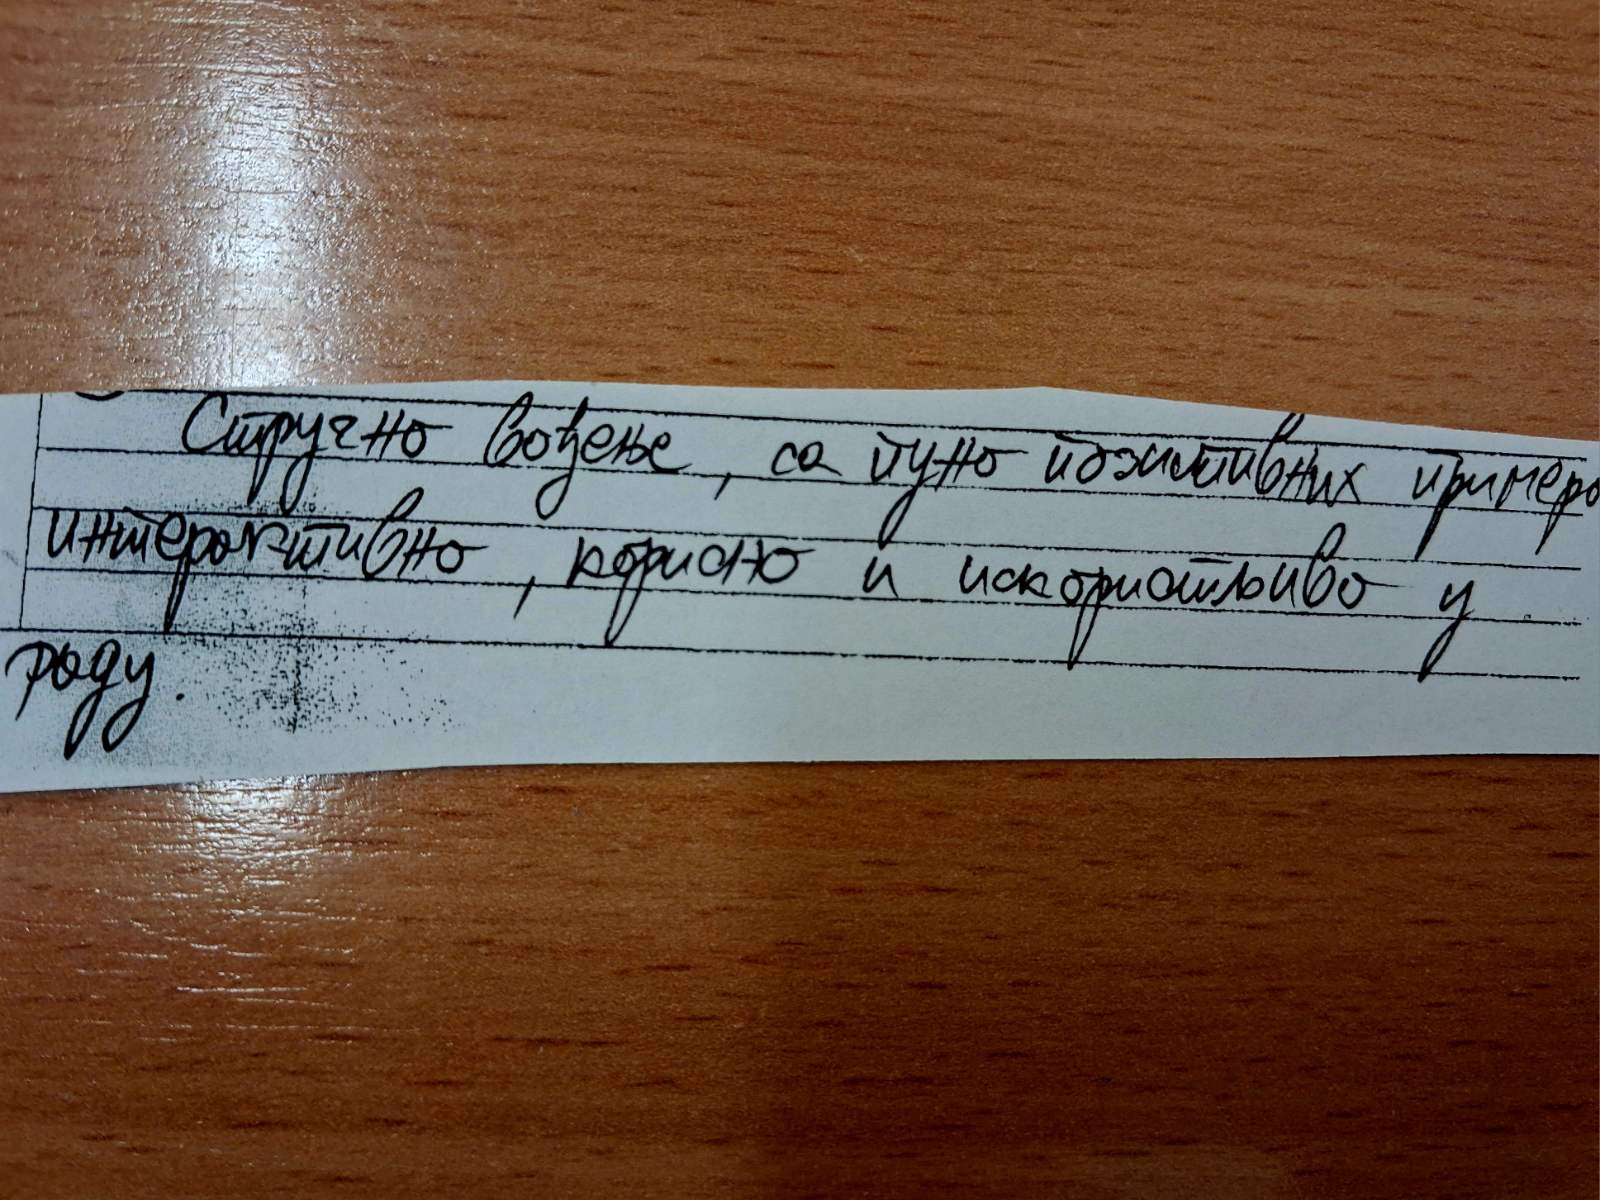 Стручно вођење, са пуно позитивних примера
интерактивно, корисно и искористљиво у
раду.